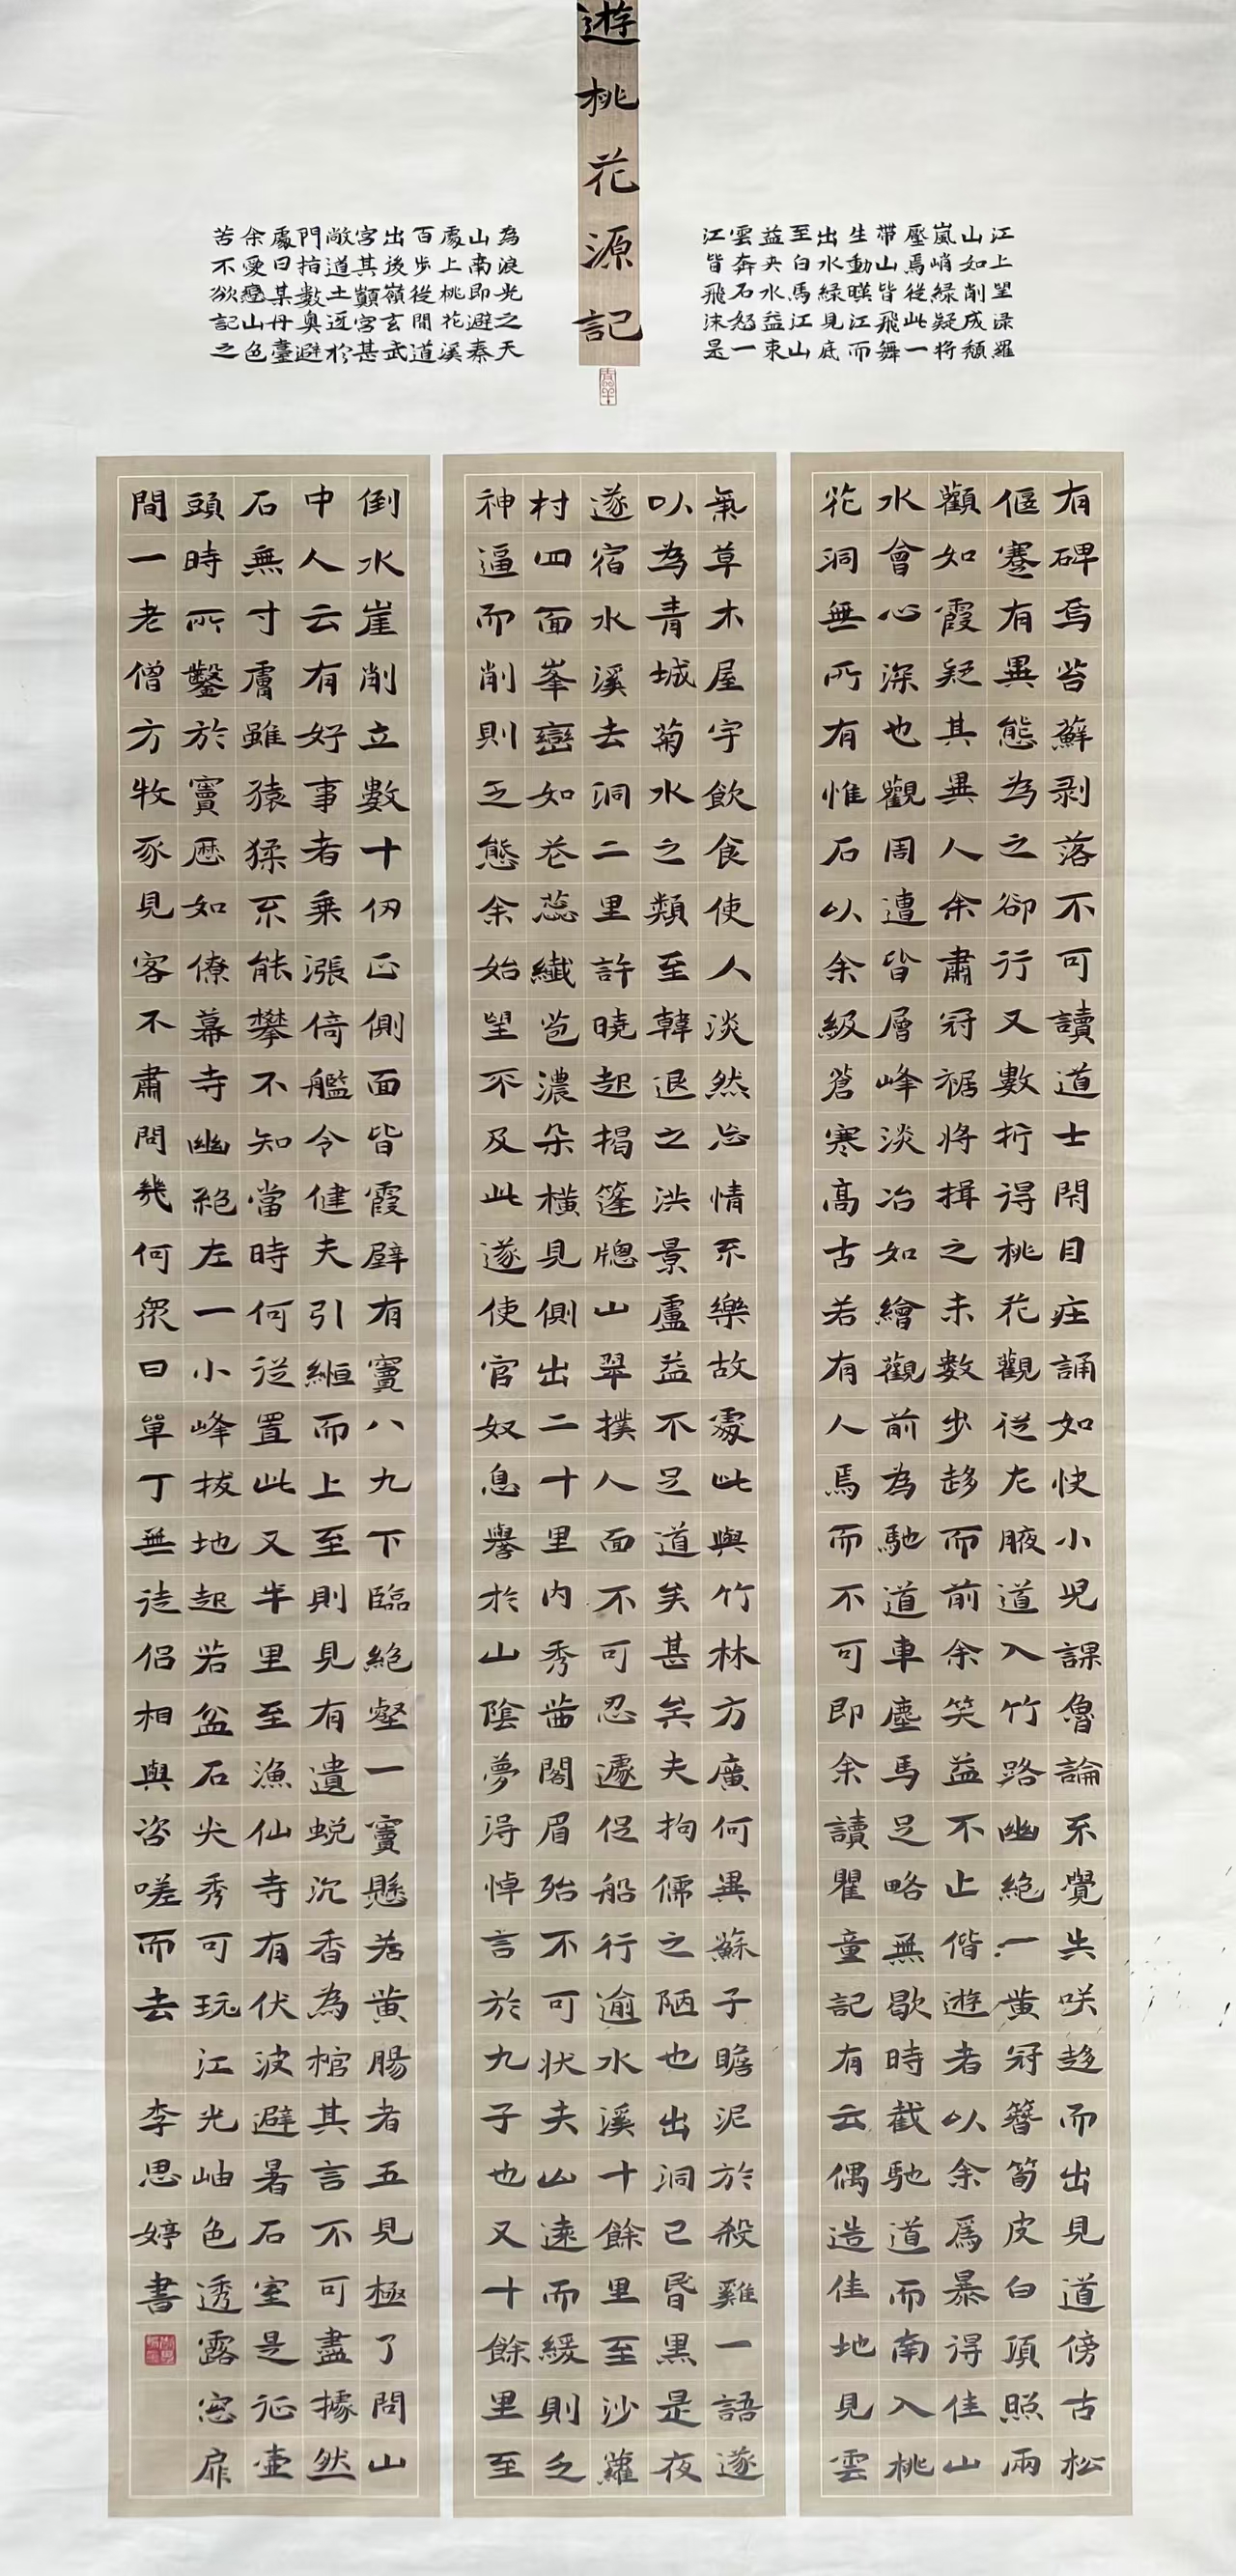 遊桃花源記
江上望渌羅
山如削成頽
嵐峭緑疑將
壓焉從此一
帶山皆飛舞
生動暎江而
出水緑見底
至白馬江山
益夾水益束
雲奔石怒一
江皆飛沫是
為浪光之天
山南即避秦
處上桃花溪
百步從間道
出後嶺玄武
宮其顛宮甚
敞道士迓於
門指數奥避
處曰某丹臺
余愛戀山色
苦不欲記之
有碑焉苔蘚剥落不可讀道士閉目疾誦如快小兒課魯論不覺失咲趍而出見道傍古松
偃蹇有異態為之卻行又數折得桃花觀從左腋道入竹路幽絶一黄冠簪笋皮白頂照兩
顴如霞疑其異人余肅冠裾將揖之未數步趍而前余笑益不止偕遊者以余爲暴得佳山
水會心深也觀周遭皆層峰淡冶如繪觀前為馳道車塵馬足略無歇時截馳道而南入桃
花洞無所有惟石以余級蒼寒髙古若有人焉而不可即余讀瞿童記有云偶造佳地見雲
氣草木屋宇飲食使人淡然忘情不樂故處此與竹林方廣何異蘇子瞻泥於殺雞一語遂
以為青城菊水之類至韓退之洪景盧益不足道矣甚矣夫拘儒之陋也出洞已昏黑是夜
遂宿水溪去洞二里許曉起揭篷牕山翠撲人面不可忍遽促船行逾水溪十餘里至沙蘿
村四面峯巒如花蕊纖苞濃朵横見側出二十里内秀茜閣眉殆不可状夫山遠而緩則乏
神逼而削則乏態余始望不及此遂使官奴息譽於山陰夢得悼言於九子也又十餘里至
倒水崖削立數十仞正側面皆霞壁有竇八九下臨絶壑一竇懸若黄腸者五見極了問山
中人云有好事者乗漲倚艦令健夫引縆而上至則見有遺蜕沉香為棺其言不可盡據然
石無寸膚雖猿猱不能攀不知當時何從置此又半里至漁仙寺有伏波避暑石室是征壷
頭時所鑿於竇歴如僚幕寺幽絶左一小峰拔地起若盆石尖秀可玩江光岫色透露窓扉
間一老僧方牧豕見客不肅問幾何衆曰單丁無徒侣相與咨嗟而去 李思婷書